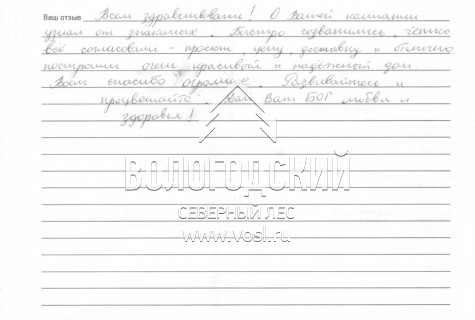 Ваш отзыв Всем здравствовать! О Вашей компании
узнал от знакомых. Быстро созвонились, чётко
всё согласовали - проект, цену, доставку и отлично
построили очень красивый и надёжный дом.
Всем спасибо огромное. Развивайтесь и
процветайте. Дай Вам БОГ любви и
здоровья!
ВОЛОГОДСКИЙ
СЕВЕРНЫЙ ЛЕС
www.vosl.ru